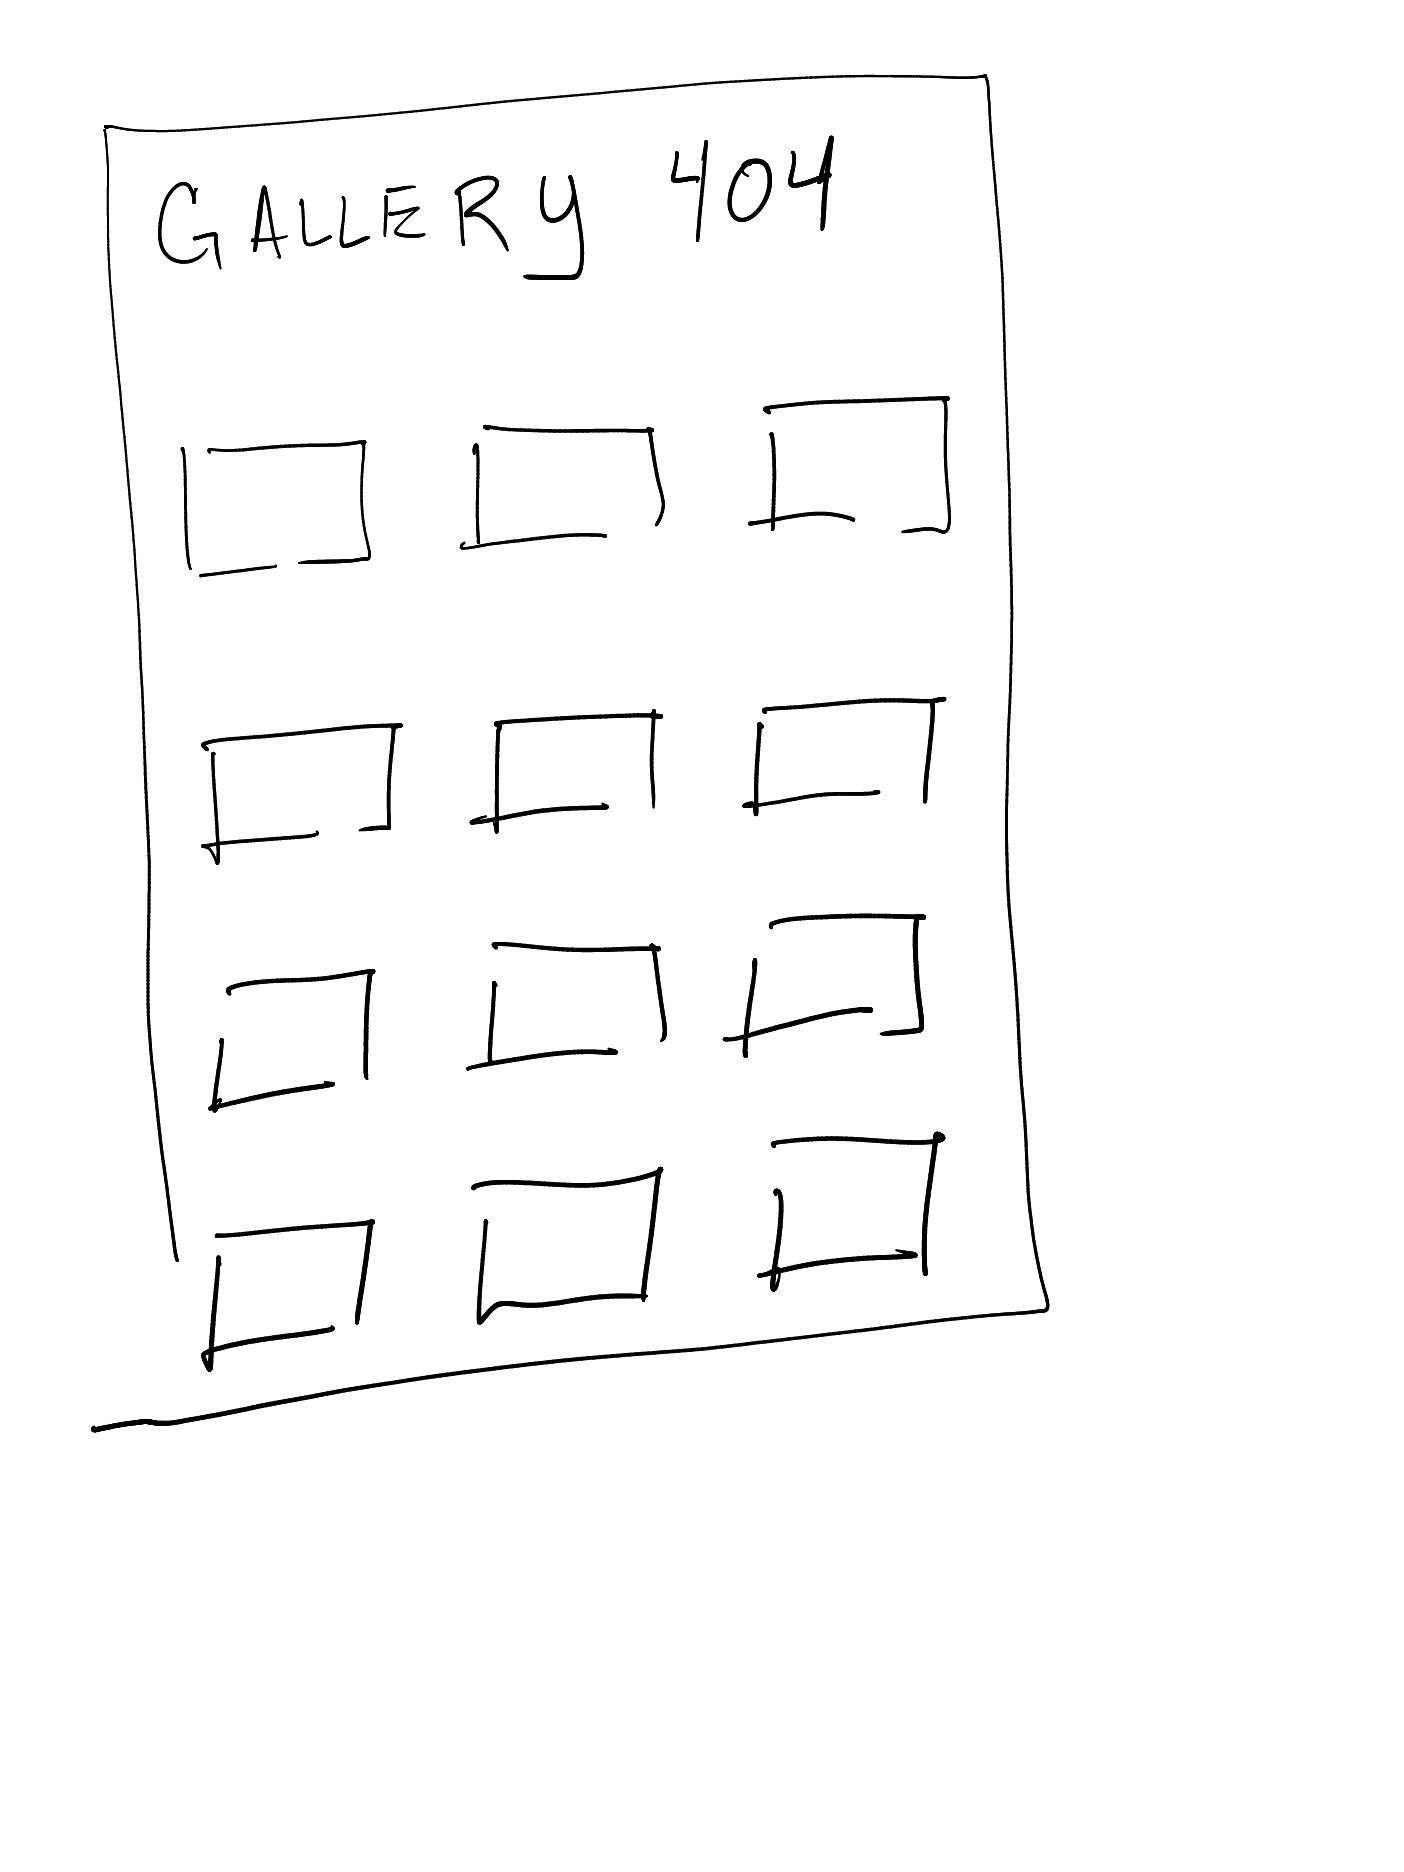 GALLERY 404